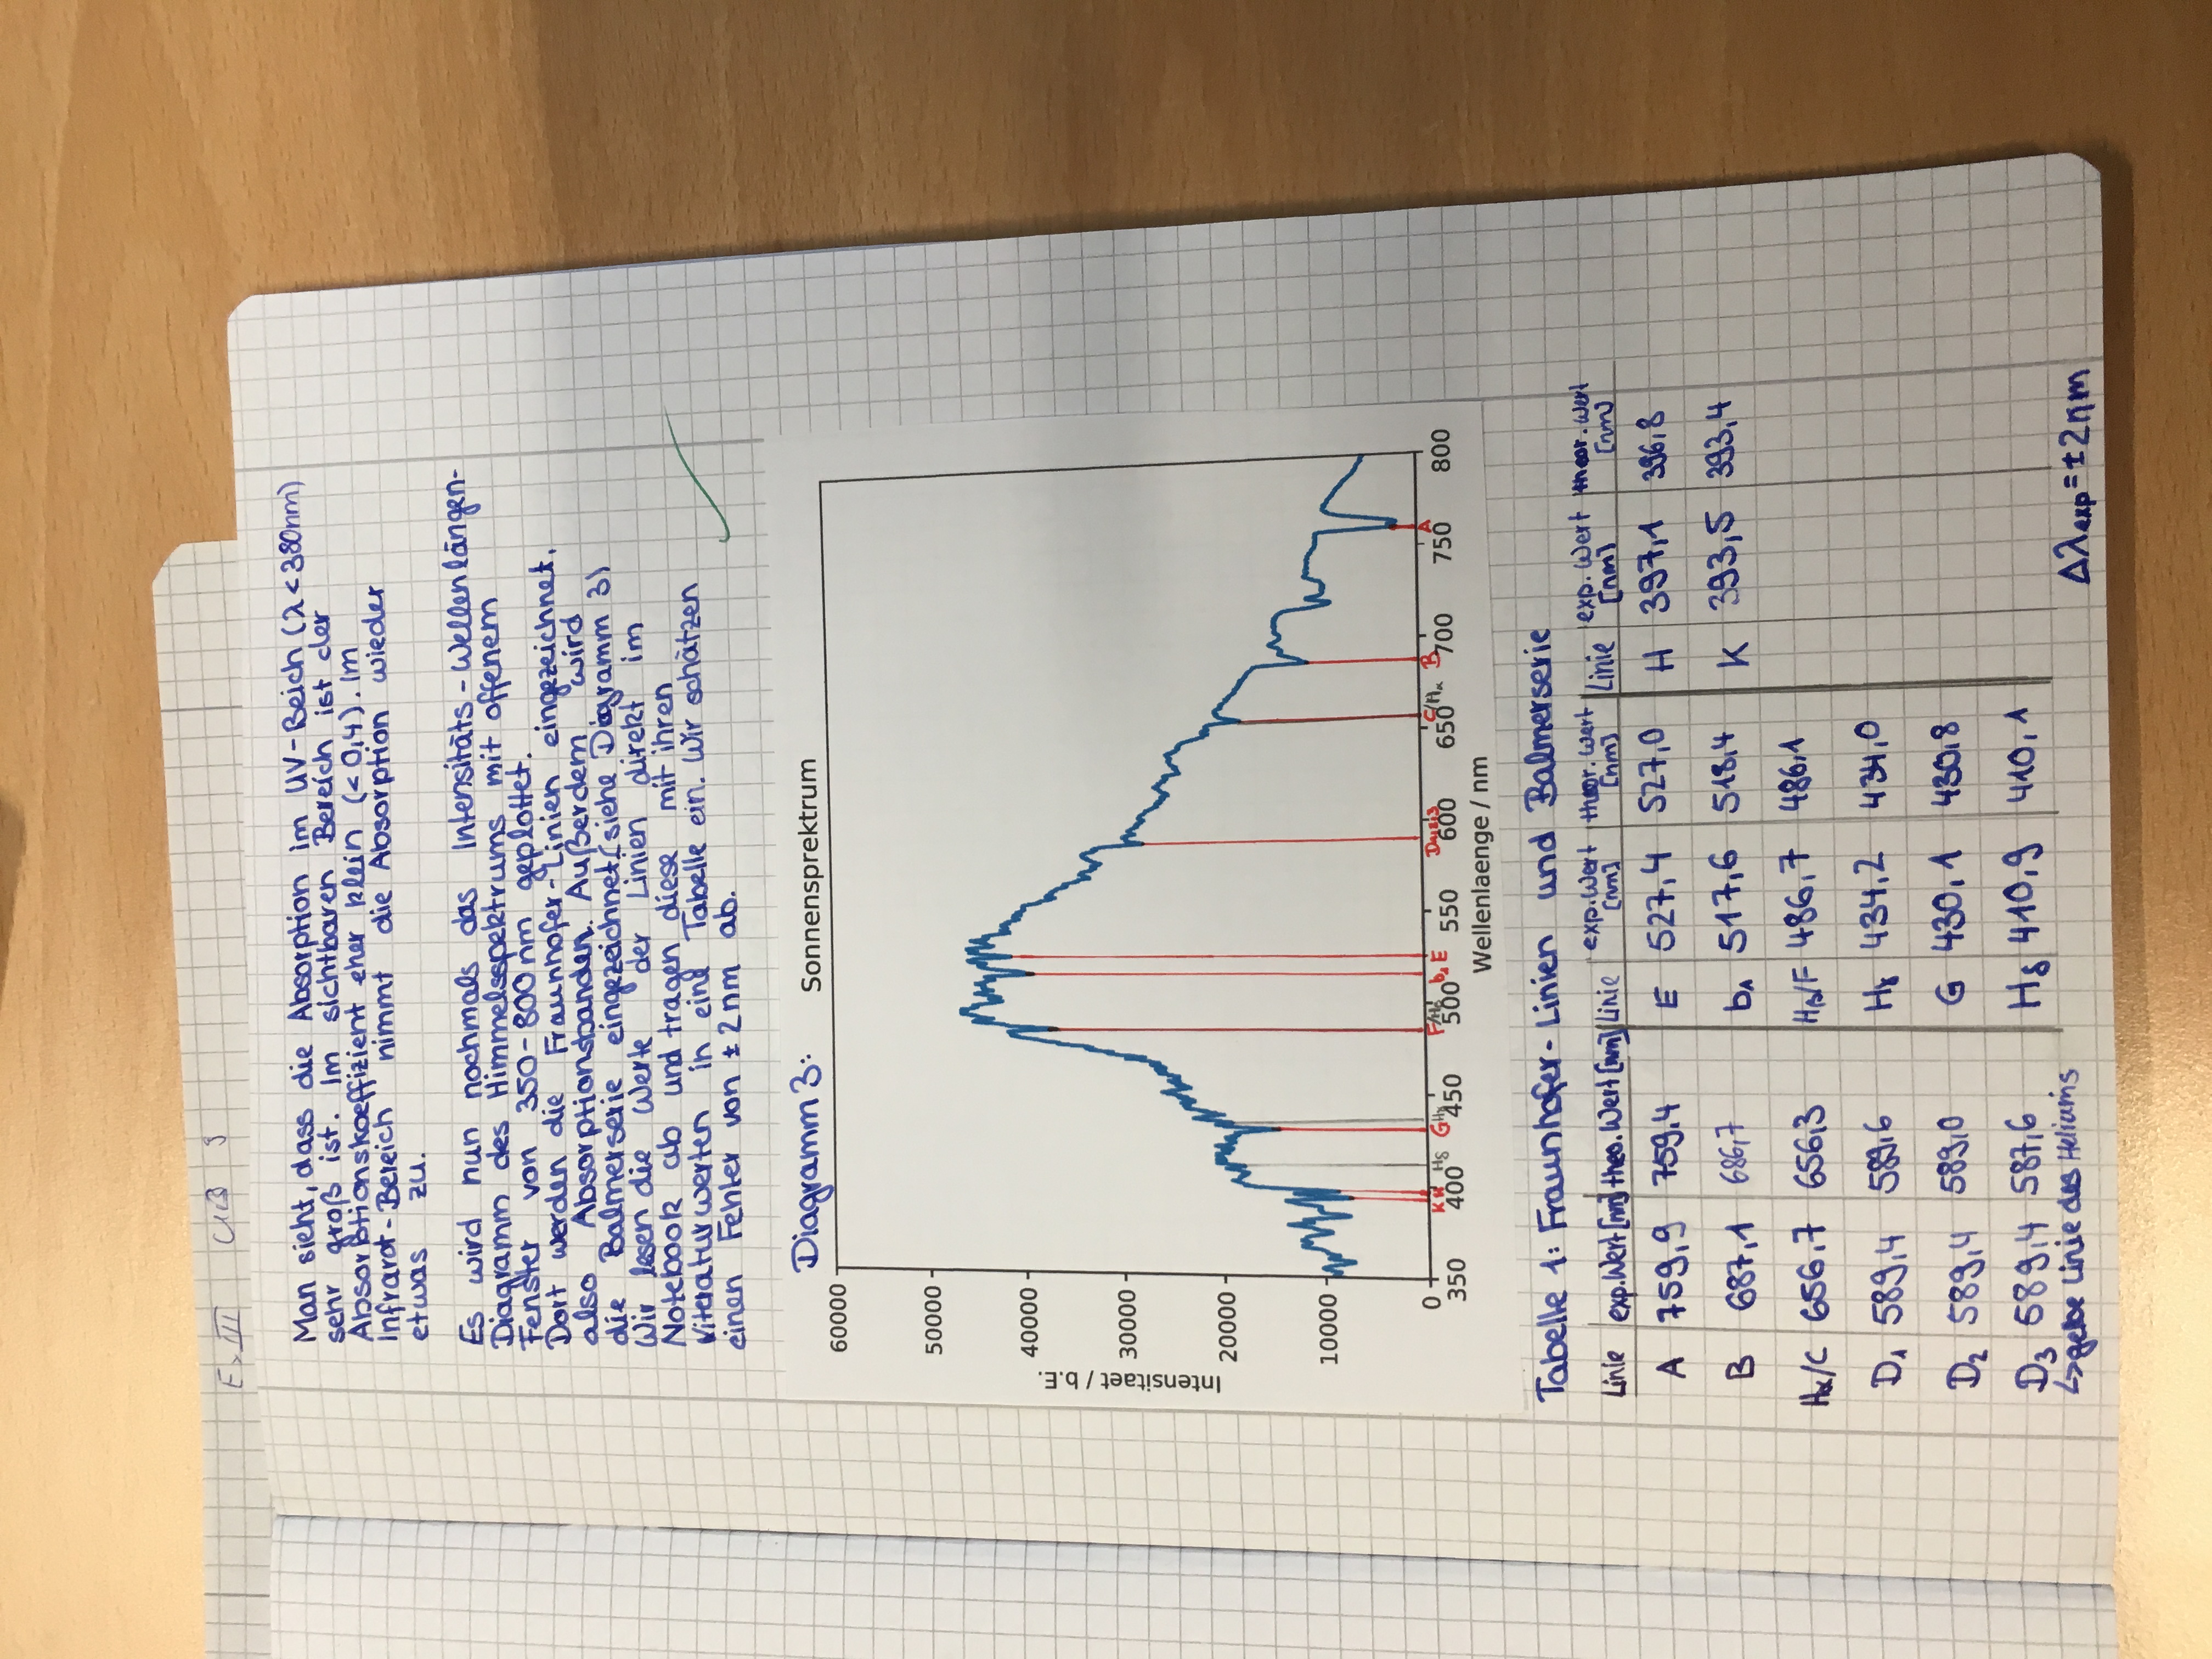 Man sieht, dass die Absorption im UV-Beich (λ < 380nm)
sehr groß ist. Im sichtbaren Bereich ist der
Absorbtionskoeffizient eher klein (< 0,4). Im
Infrarot-Bereich nimmt die Absorption wieder
etwas zu.
Es wird nun nochmals das Intensitäts-Wellenlängen-
Diagramm des Himmelsspektrums mit offenem
Fenster von 350-800nm geplottet.
Dort werden die Fraunhofer-Linien eingezeichnet,
also Absorptionsbanden. Außerdem wird
die Balmerserie eingezeichnet (siehe Diagramm 3)
Wir lesen die Werte der Linien direkt im
Notebook ab und tragen diese mit ihren
Literaturwerten in eine Tabelle ein. Wir schätzen
einen Fehler von ± 2nm ab.
Diagramm 3: Sonnensprektrum
60000
50000
40000
30000
20000
10000
0
Intensitaet / b.E.
K H Hδ G Hγ F/Hβ b₁ E D₁,₂,₃ C/Hα B A
350 400 450 500 550 600 650 700 750 800
Wellenlaenge / nm
Tabelle 1: Fraunhofer-Linien und Balmerserie
Linie exp.Wert [nm] theo. Wert [nm] Linie exp.Wert [nm] theor. Wert [nm] Linie exp. Wert [nm] theor. Wert [nm]
A 759,9 759,4 E 527,4 527,0 H 397,1 396,8
B 687,1 686,7 b₁ 517,6 518,4 K 393,5 393,4
Hα/C 656,7 656,3 Hβ/F 486,7 486,1
D₁ 589,4 589,6 Hγ 434,2 434,0
D₂ 589,4 589,0 G 430,1 430,8
D₃ 589,4 587,6 Hδ 410,9 410,1
↳ gelbe Linie des Heliums
Δλexp = ± 2nm